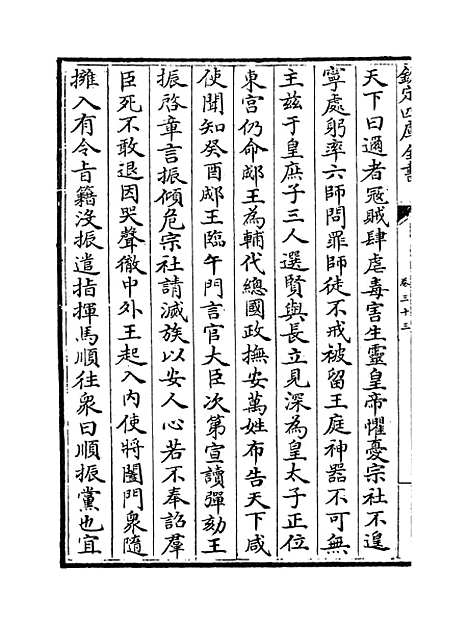 欽定四庫全書
卷三十三
天下曰邇者冦賊肆虐毒害生靈皇帝懼憂宗社不遑
寧處躬率六師問罪師徒不戒被留王庭神器不可無
主兹于皇庶子三人選賢與長立見深為皇太子正位
東宫仍命郕王為輔代總國政撫安萬姓布告天下咸
使聞知癸酉郕王臨午門言官大臣次第宣讀彈劾王
振啓章言振傾危宗社請滅族以安人心若不奉詔羣
臣死不敢退因哭聲徹中外王起入内使將闔門衆隨
擁入有令㫖籍没振遣指揮馬順往衆曰順振黨也宜